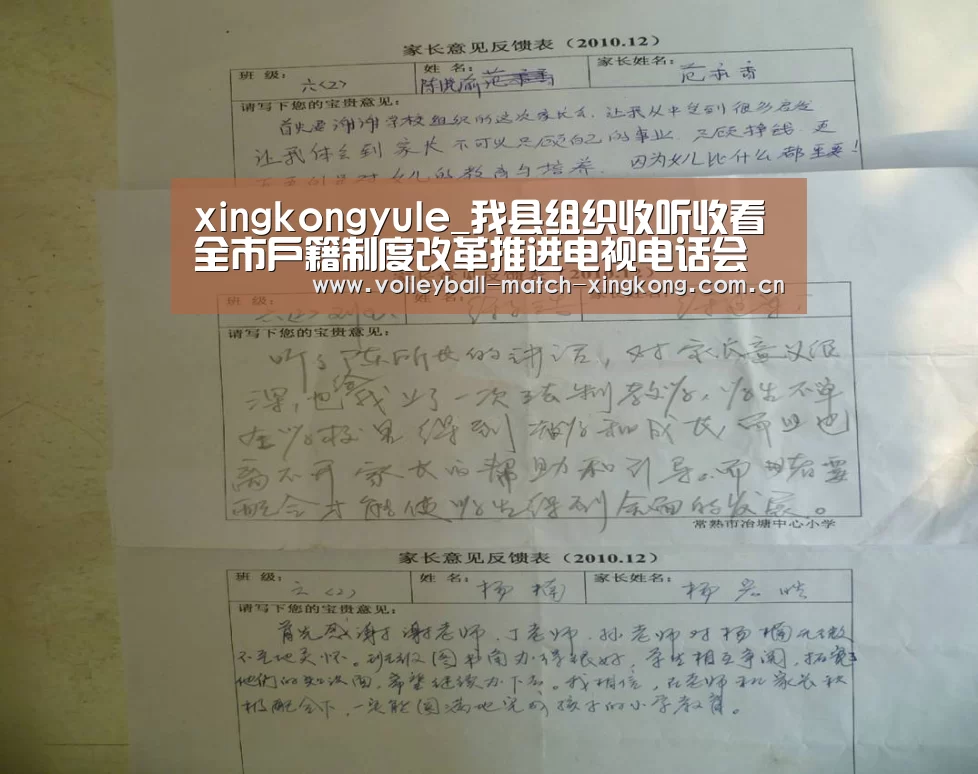 家长意见反馈表（2010.12）
班 级： 六(2) 姓 名： 家长姓名： 范
请写下您的宝贵意见：
首先要谢谢学校组织的这次家长会，让我从中受到很多启发
让我体会到家长不可以只顾自己的事业，只顾挣钱，更
女儿的教育与培养，因为女儿比什么都重要！
xingkongyule_我县组织收听收看
全市户籍制度改革推进电视电话会
www.volleyball-match-xingkong.com.cn
班 级： 姓 名： 家长姓名：
请写下您的宝贵意见：
听了陈所长的讲话，对家长意义很
深，也给我上了一次法制教育，学生不单
在学校里得到教学和成长，而且也
离不开家长的帮助和引导。而要
配合才能使学生得到全面的发展。
常熟市冶塘中心小学
家长意见反馈表（2010.12）
班 级： 六(2) 姓 名： 杨楠 家长姓名： 杨
请写下您的宝贵意见：
首先感谢谢老师，丁老师，孙老师对杨楠无微
不至地关怀。班级图书角办得很好，学生相互争阅，拓宽了
他们的知识面，希望继续办下去。我相信，在老师和家长积
极配合下，一定能圆满地完成孩子的小学教育。